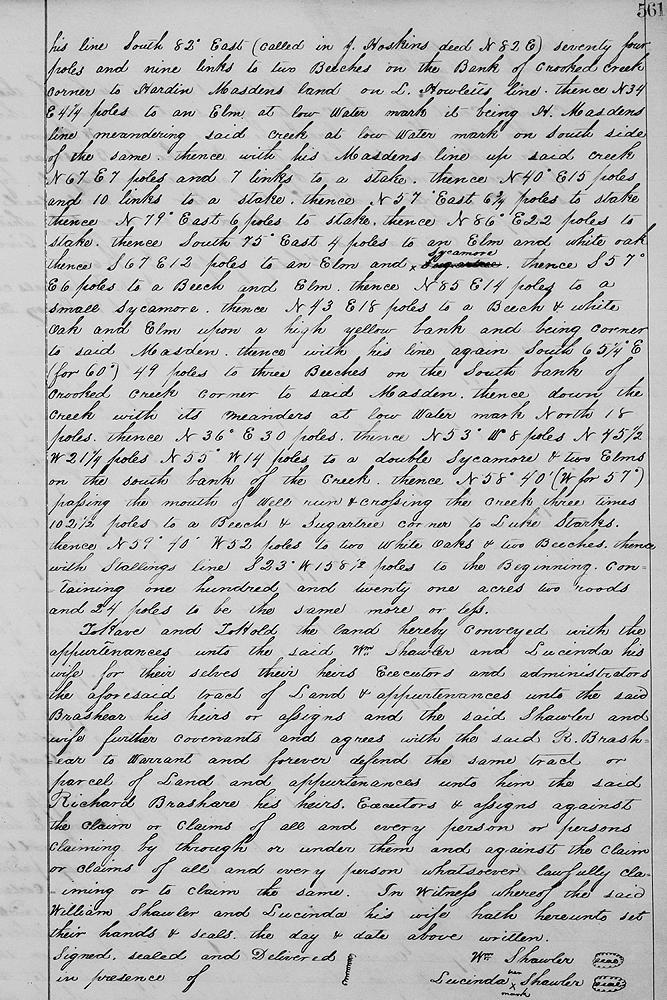 561
his line South 82° East (called in J. Hoskins deed N 82 E) seventy four
poles and nine links to two Beeches on the Bank of Crooked Creek
corner to Hardin Masdens land on L. Howletts line. thence N 34
E 4 1/4 poles to an Elm at low Water mark it being H. Masdens
line meandering said Creek at low Water mark on South side
of the same. thence with his Masdens line up said creek
N 67 E 7 poles and 7 links to a stake. thence N 40° E 15 poles
and 10 links to a stake. thence N 57° East 6 3/4 poles to stake
thence N 79° East 6 poles to stake. thence N 86° E 22 poles to
stake. thence South 75° East 4 poles to an Elm and white oak
Sycamore
thence S 67 E 12 poles to an Elm and x Sugartree. thence S 57°
E 6 poles to a Beech and Elm. thence N 85 E 14 poles to a
small Sycamore. thence N 43 E 18 poles to a Beech & white
Oak and Elm upon a high yellow bank and being corner
to said Masden. thence with his line again South 65 1/4° E
(for 60°) 49 poles to three Beeches on the South bank of
Crooked Creek corner to said Masden. thence down the
Creek with its meanders at low Water mark North 18
poles. thence N 36° E 30 poles. thence N 53° W 8 poles N 45 1/2
W 21 1/4 poles N 55° W 14 poles to a double Sycamore & two Elms
on the south bank of the Creek. thence N 58° 40' (W for 57°)
passing the mouth of Well run & crossing the Creek three times
102 1/2 poles to a Beech & Sugartree corner to Luke Starks.
thence N 59° 40' W 52 poles to two White Oaks & two Beeches. thence
with Stallings line S 23° W 158 1/2 poles to the Beginning. Con=
-taining one hundred and twenty one acres two roods
and 24 poles to be the same more or less.
To Have and To Hold the land hereby conveyed with the
appurtenances unto the said Wm Shawler and Lucinda his
wife for their selves their heirs Executors and administrators
the aforesaid tract of Land & appurtenances unto the said
Brashear his heirs or assigns and the said Shawler and
wife further covenants and agrees with the said R. Brash=
-ear to Warrant and forever defend the same tract or
parcel of Land and appurtenances unto him the said
Richard Brashare his heirs. Executors & assigns against
the claim or claims of all and every person or persons
claiming by through or under them and against the claim
or claims of all and every person whatsoever lawfully cla-
-iming or to claim the same. In Witness whereof the said
William Shawler and Lucinda his wife hath hereunto set
their hands & seals. the day & date above written.
Signed, sealed and Delivered Wm Shawler seal
in presence of Lucinda her x mark Shawler seal